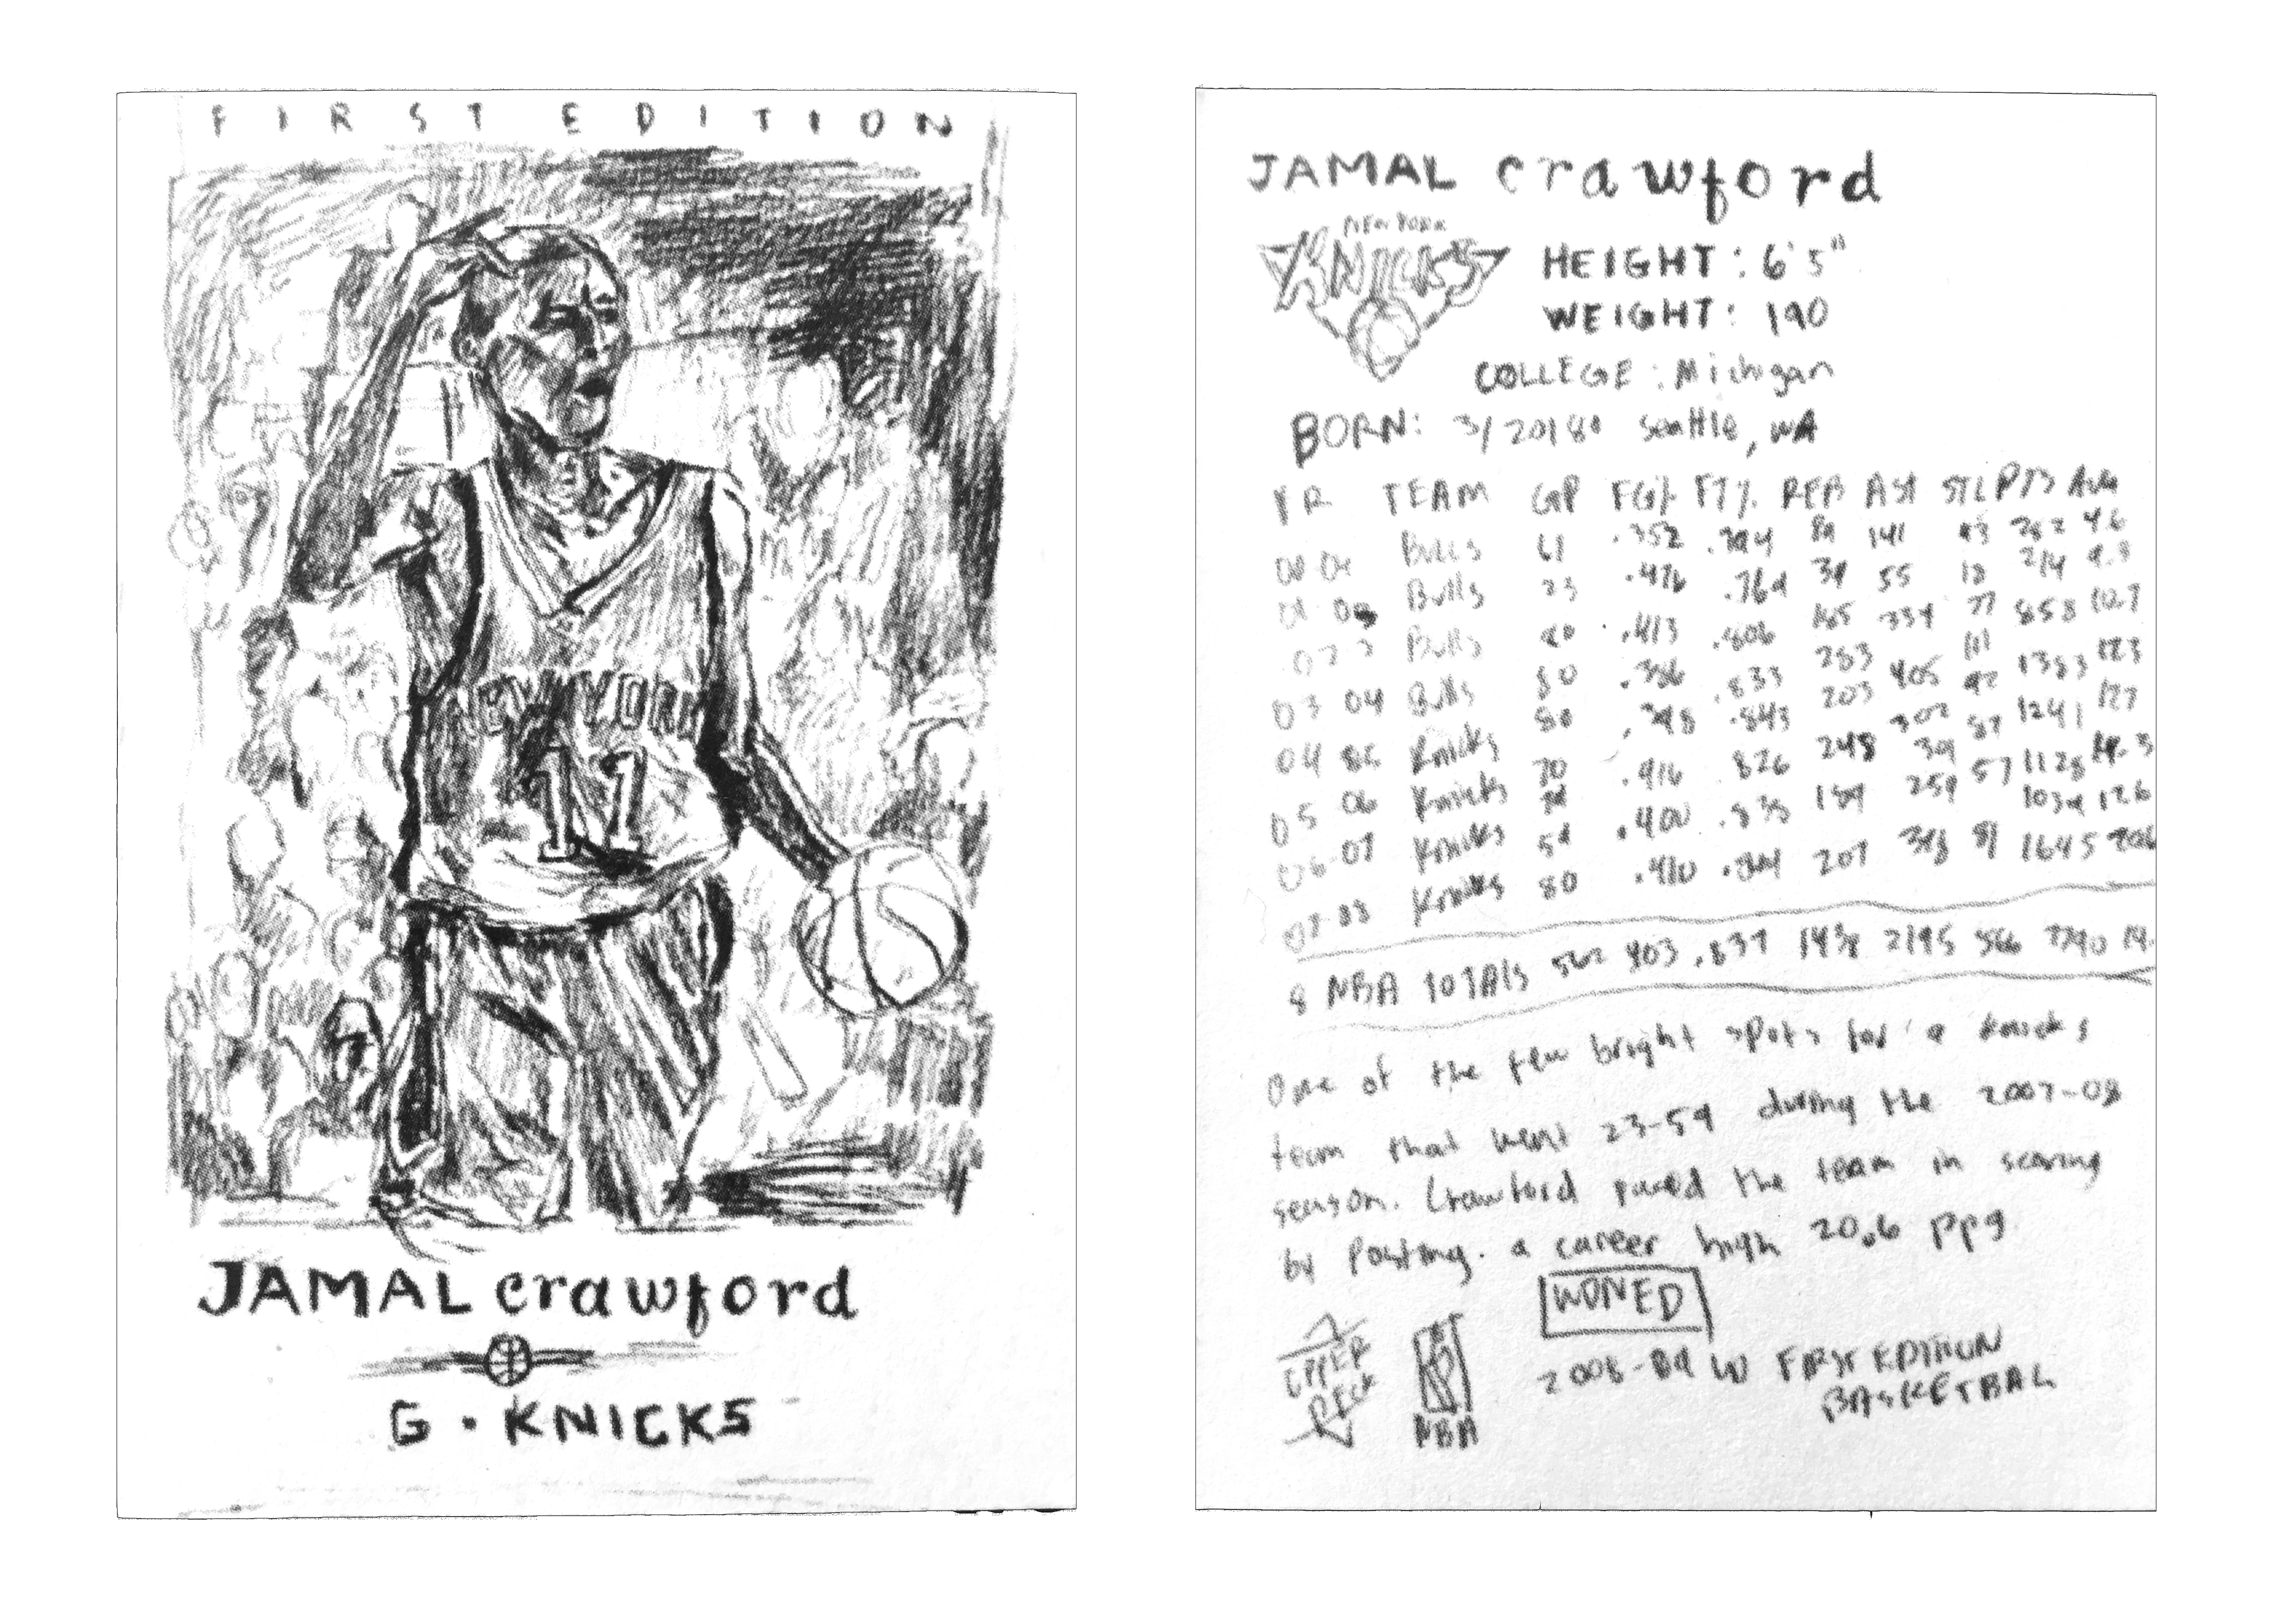 FIRST EDITION
NEW YORK
11
JAMAL crawford
G · KNICKS
JAMAL crawford
NEW YORK
KNICKS
HEIGHT: 6'5"
WEIGHT: 190
COLLEGE: Michigan
BORN: 3/20/80 Seattle, WA
YR TEAM GP FG% FT% REB AST STL PTS AVG
Bulls 61 .352 .794 89 141 43 282 4.6
Bulls 23 .476 .769 34 55 18 214 9.3
Bulls 80 .413 .806 185 334 77 858 10.7
03 04 Bulls 80 .386 .833 283 405 111 1383
04 Knicks .398 .843 203 302 92 1241
05 06 Knicks .416 .826 248 87 1128 14.3
06-07 Knicks 59 .400 .838 189 259 57 1039
07-08 Knicks 80 .410 207 1645
8 NBA TOTALS 562 403 .837 2195 566 7790
One of the few bright spots for a Knicks
team that went 23-59 during the 2007-08
season. Crawford paced the team in scoring
by posting. a career high 20.6 ppg
WONED
UPPER
DECK
NBA
2008-89 W FIRST EDITION
BASKETBAL